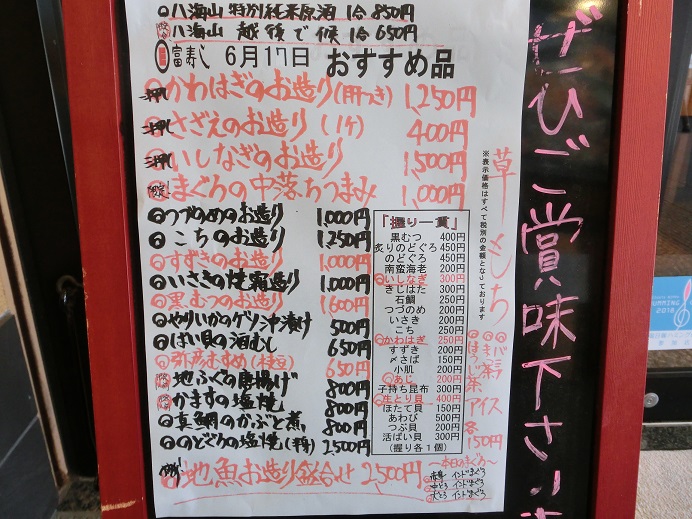 八海山 特別純米原酒 1合 850円
八海山 越後で候 1合 650円
富寿し 6月17日 おすすめ品
かわはぎのお造り(肝つき) 1,250円
さざえのお造り(1ケ) 400円
いしなぎのお造り 1,500円
まぐろの中落ちつまみ 1,000円
つづのめのお造り 1,000円
こちのお造り 1,250円
すずきのお造り 1,000円
いさきの焼霜造り 1,000円
黒むつのお造り 1,600円
やりいかのゲソシャン漬け 500円
ばい貝の酒むし 650円
弥彦むすめ(枝豆) 650円
地ふぐの唐揚げ 800円
かますの塩焼 800円
真鯛のかぶと煮 800円
のどぐろの塩焼(半身) 2,500円
地魚お造り盛合せ 2,500円
「握り一貫」
黒むつ 400円
炙りのどぐろ 450円
のどぐろ 450円
南蛮海老 200円
いしなぎ 300円
きじはた 300円
石鯛 250円
つづのめ 200円
いさき 200円
こち 250円
かわはぎ 250円
すずき 200円
〆さば 150円
小肌 200円
あじ 200円
子持ち昆布 300円
生とり貝 400円
ほたて貝 150円
あわび 500円
つぶ貝 200円
活ばい貝 300円
(握り各1個)
※表示価格はすべて税別の金額となっております
草もち
アイス
各150円
~本日のまぐろ~
赤身 インドまぐろ
中とろ インドまぐろ
大とろ インドまぐろ
ぜひご賞味下さい
2018